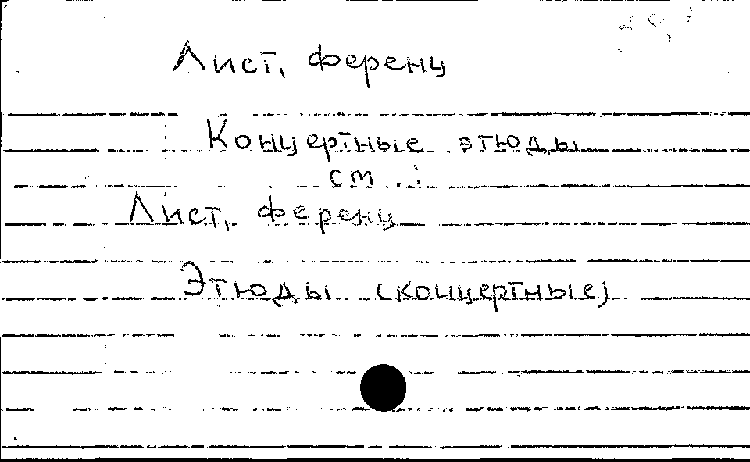 Лист, Ференц
Концертные этюды
см.:
Лист, Ференц
Этюды (концертные)